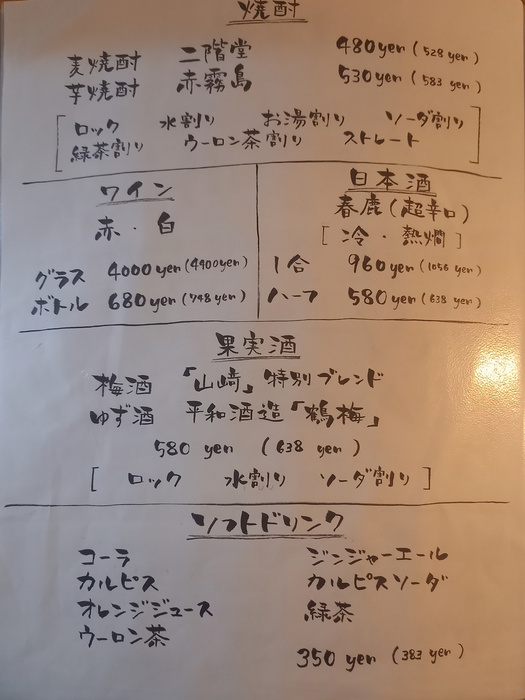 焼酎
麦焼酎 二階堂 480yen (528 yen)
芋焼酎 赤霧島 530yen (583 yen)
[ ロック 水割り お湯割り ソーダ割り
緑茶割り ウーロン茶割り ストレート ]
ワイン
赤・白
グラス 4000yen (4400yen)
ボトル 680yen (748yen)
日本酒
春鹿(超辛口)
[ 冷・熱燗 ]
1合 960yen (1056 yen)
ハーフ 580yen (638 yen)
果実酒
梅酒 「山崎」特別ブレンド
ゆず酒 平和酒造「鶴梅」
580 yen (638 yen)
[ ロック 水割り ソーダ割り ]
ソフトドリンク
コーラ ジンジャーエール
カルピス カルピスソーダ
オレンジジュース 緑茶
ウーロン茶
350 yen (383 yen)